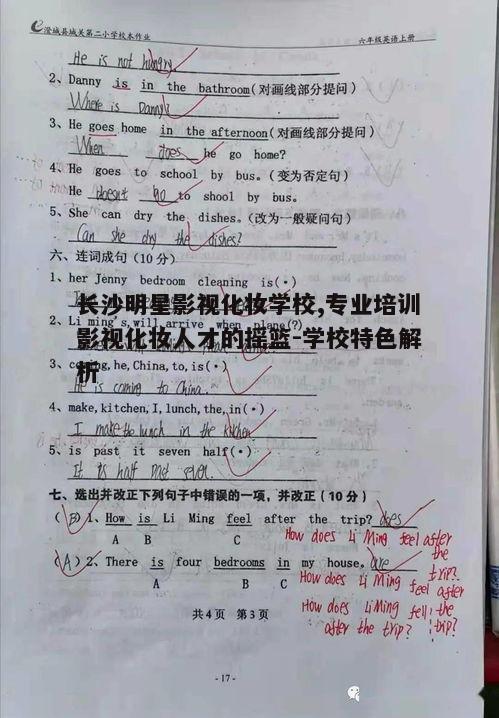 澄城县城关第二小学校本作业 六年级英语上册
He is not hungry
2、Danny is in the bathroom(对画线部分提问)
Where is Danny?
3、He goes home in the afternoon(对画线部分提问)
When does he go home?
4、He goes to school by bus。(变为否定句)
He doesn't go to shool by bus.
5、She can dry the dishes。(改为一般疑问句)
Can she dry the dishes?
六、连词成句(10分)
1、her Jenny bedroom cleaning is(·)
长沙明星影视化妆学校,专业培训
2、Li ming's,will,arrive when plane(?)
影视化妆人才的摇篮-学校特色解
析
3、coming,he,China,to,is(·)
He is coming to China.
4、make,kitchen,I,lunch,the,in(·)
I make the lunch in the kitchen
5、is past it seven half(·)
It is half past seven.
七、选出并改正下列句子中错误的一项,并改正(10分)
(B)1、How is Li Ming feel after the trip? does
A B C
How does Li Ming feel after
the
trip?
(A)2、There is four bedrooms in my house。are
A B C
How does Li Ming feel after
How does Li Ming fell the
after the trip? trip?
共4页 第3页
-17-